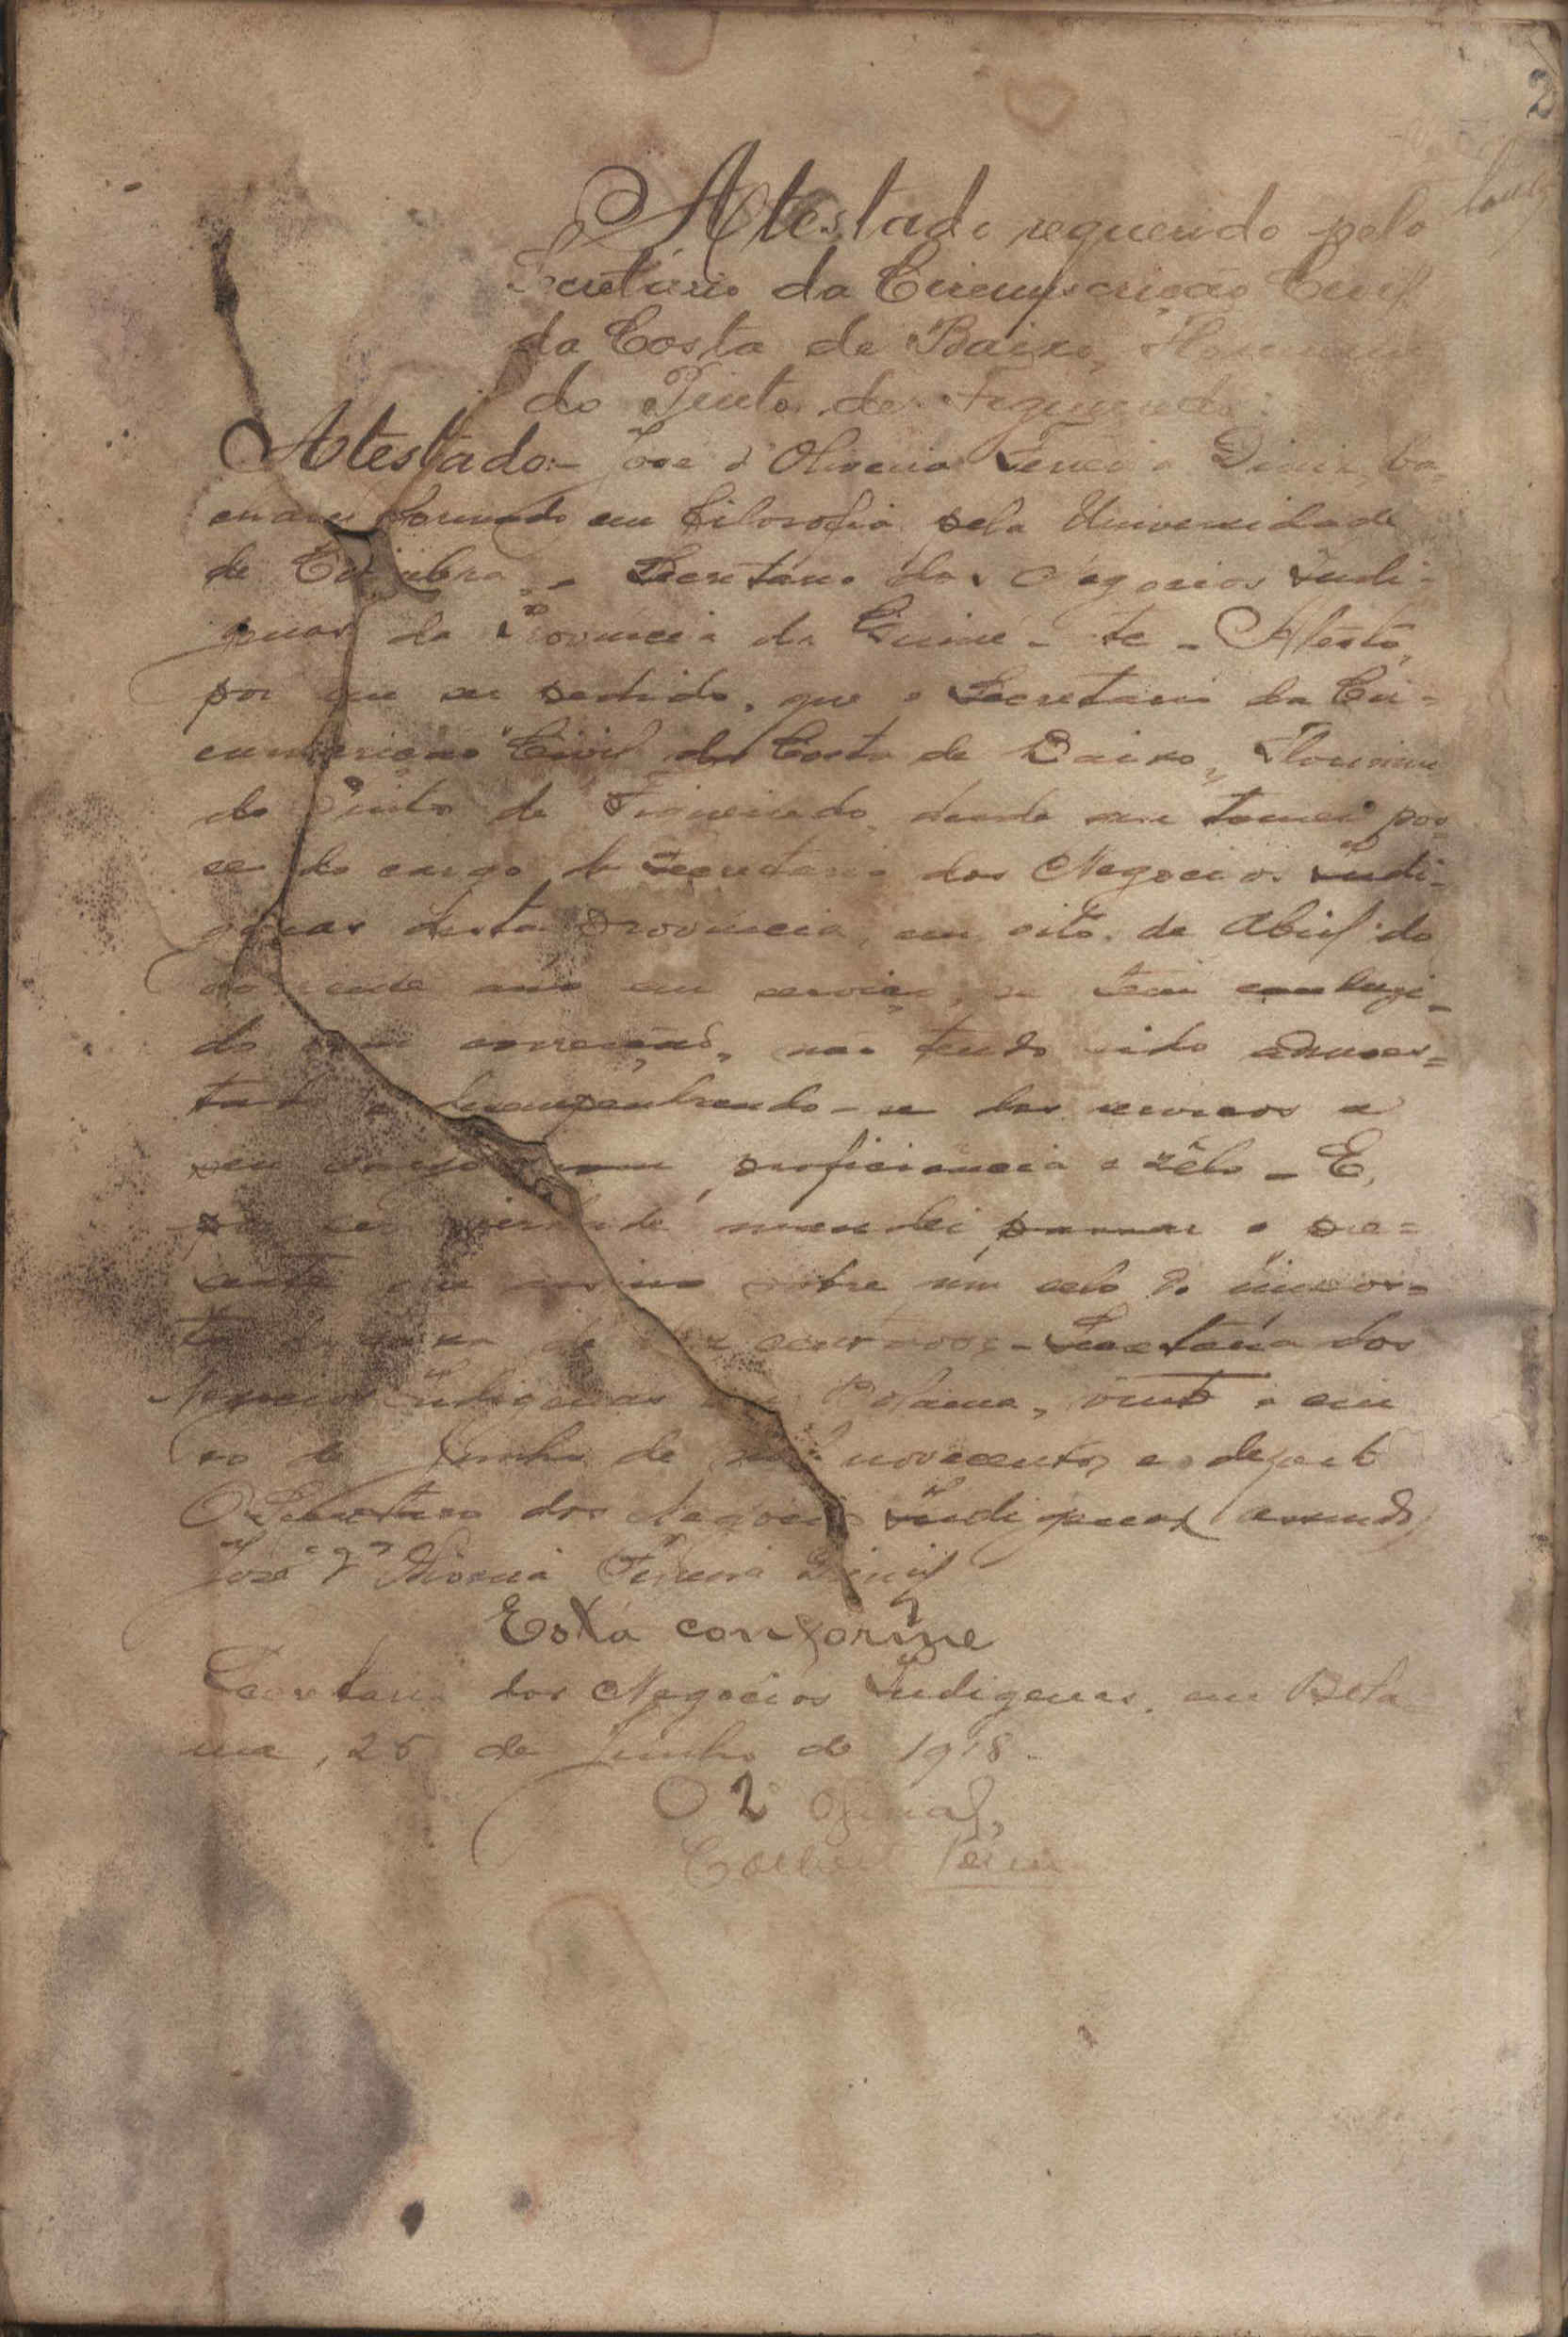 2
Atestado requerido pelo
Secretário da Circunscrição Civil
da Costa de Baixo,
do Pinto de Figueiredo
Atestado:- José d'Oliveira Ferreira Diniz, ba-
charel formado em Filosofia pela Universidade
de Coimbra, Secretário dos Negocios Indi-
genas da Provincia da Guiné - etc - Atesto,
por me ser pedido, que o Secretario da Cir-
cunscrição Civil da Costa de Baixo,
do Pinto de Figueiredo, desde que tomei pos-
se do cargo de Secretario dos Negocios Indi-
genas desta Provincia, em oito de Abril do
corrente ano em serviço, se tem conduzi-
do com correcção, não tendo sido
e desempenhando-se dos serviços a
seu cargo com proficiencia e zêlo - E,
por ser verdade mandei passar o pre-
sente que assino sobre um selo do
da taxa de centavos - Secretaria dos
Negocios Indigenas em Bolama, vinte e cin
co de Junho de mil novecentos e dezoito
O Secretario dos Negocios Indigenas
José d'Oliveira Ferreira Diniz
Está conforme
Secretaria dos Negócios Indigenas, em Bola
ma, 25 de Junho de 1918.
O 2º Oficial,